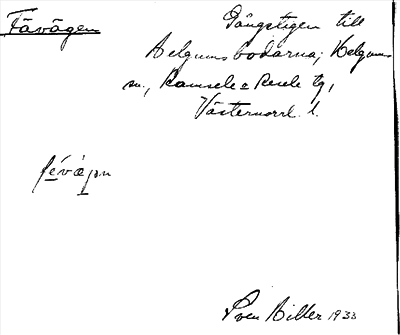 Fävägen
Gångstigen till
Helgumsbodarna, Helgums
sn., Ramsele o Resele tg,
Västernorrl. l.
févæjen
Sven Biller 1933